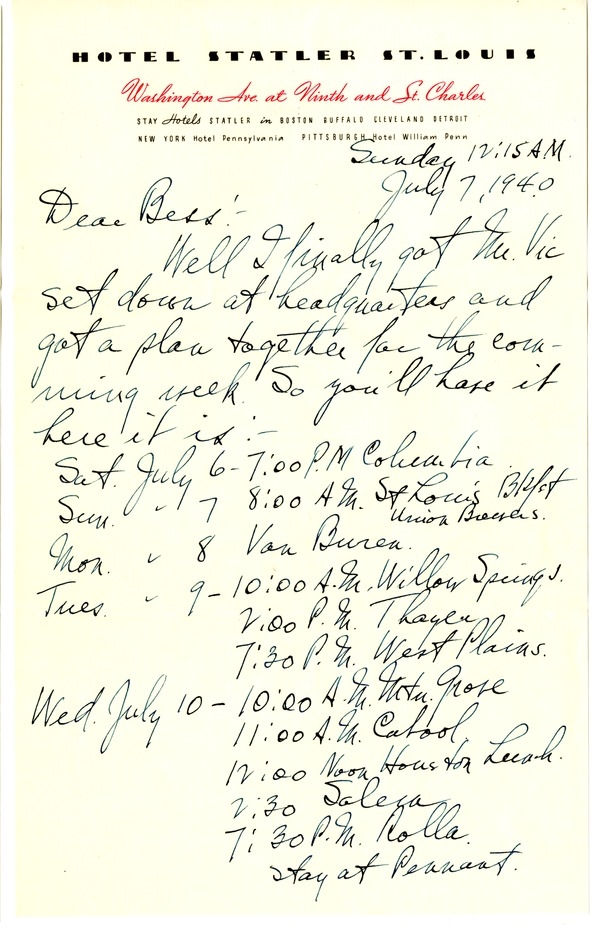 HOTEL STATLER ST. LOUIS
Washington Ave. at Ninth and St. Charles
STAY Hotels STATLER in BOSTON BUFFALO CLEVELAND DETROIT
NEW YORK Hotel Pennsylvania PITTSBURGH Hotel William Penn
Sunday 12:15 A.M.
July 7, 1940
Dear Bess:-
Well I finally got Mr. Vic
set down at headquarters and
got a plan together for the com-
ming week. So you'll have it
here it is:-
Sat. July 6 - 7:00 P.M Columbia
Sun. " 7 8:00 A.M. St Louis Bkfst
Union Brewers.
Mon. " 8 Van Buren.
Tues. " 9 - 10:00 A.M. Willow Springs.
2:00 P.M. Thayer
7:30 P.M. West Plains.
Wed. July 10 - 10:00 A.M. Mtn. Grove
11:00 A.M. Cabool.
12:00 Noon Houston Lunch.
2:30 Salem
7:30 P.M. Rolla.
Stay at Pennant.